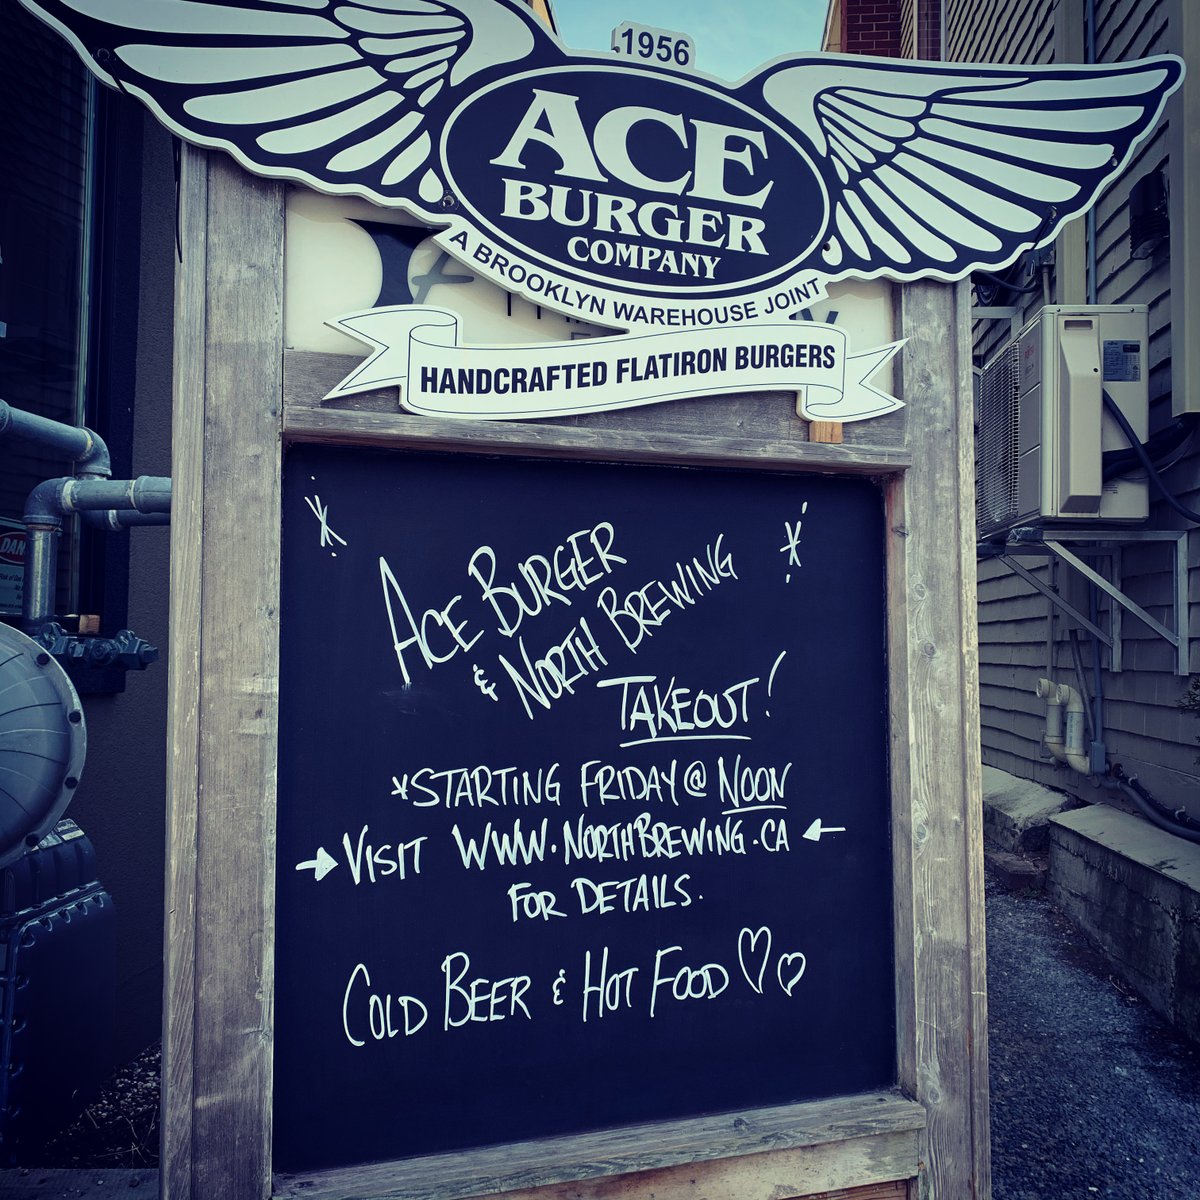 1956
ACE
BURGER
COMPANY
A BROOKLYN WAREHOUSE JOINT
HANDCRAFTED FLATIRON BURGERS
ACE BURGER
& NORTH BREWING
TAKEOUT!
*STARTING FRIDAY @ NOON
→ VISIT WWW.NORTHBREWING.CA ←
FOR DETAILS.
COLD BEER & HOT FOOD ♡♡
DAN